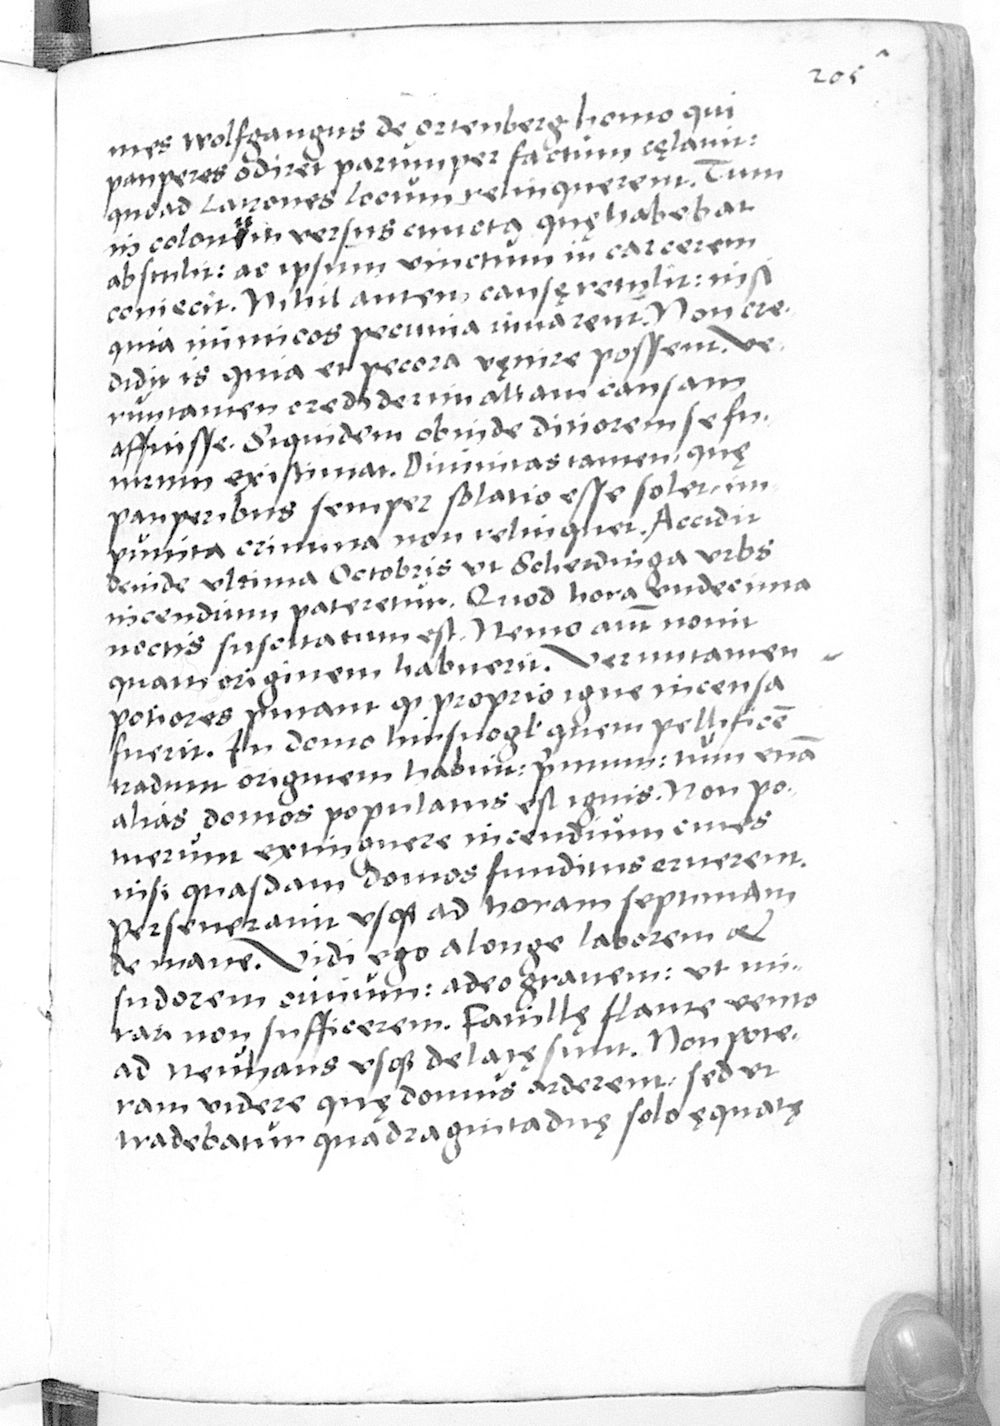 205
mes Wolfgangus de Ortenberg homo qui
pauperes odiret parumper factum cęlauit:
quoad Latrones locum relinquerent. Tum
in colonum versus cuncta quę habebat
abstulit: ac ipsum vinctum in carcerem
coniecit. Nihil autem causę retulit: nisi
quia inimicos pecunia iuuarent. Non cre-
didit is quia et pecora vęnire possent. Ve-
runtamen crediderim aliam causam
affuisse. Siquidem obinde ditiorem se fu-
turum existimat. Diuinitas tamen, quę
pauperibus semper solatio esse solet, im-
punita crimina non relinquet. Accidit
deinde vltima Octobris vt Scherdinga vrbs
incendium pateretur. Quod hora vndecima
noctis suscitatum est. Nemo aut̄ nouit
quam originem habuerit. Veruntamen
potiores putant qɔ proprio igne incensa
fuerit. In domo quem pellificē
tradunt originem habuit: pͥmum: tum etiā
alias domos populatus est ignis. Non po-
tuerunt extinguere incendium ciues
nisi quasdam domos funditus eruerent.
Perseuerauit vsqꝫ ad horam septimam
de mane. Vidi ego a longe laborem &
sudorem ciuium: adeo grauem: vt mi-
rari non sufficerem. Fauillę flante vento
ad Neuhaus vsqꝫ delatę sunt. Non pote-
ram videre quę domus arderent, sed vt
tradebatur quadragintaduę solo ęquatę